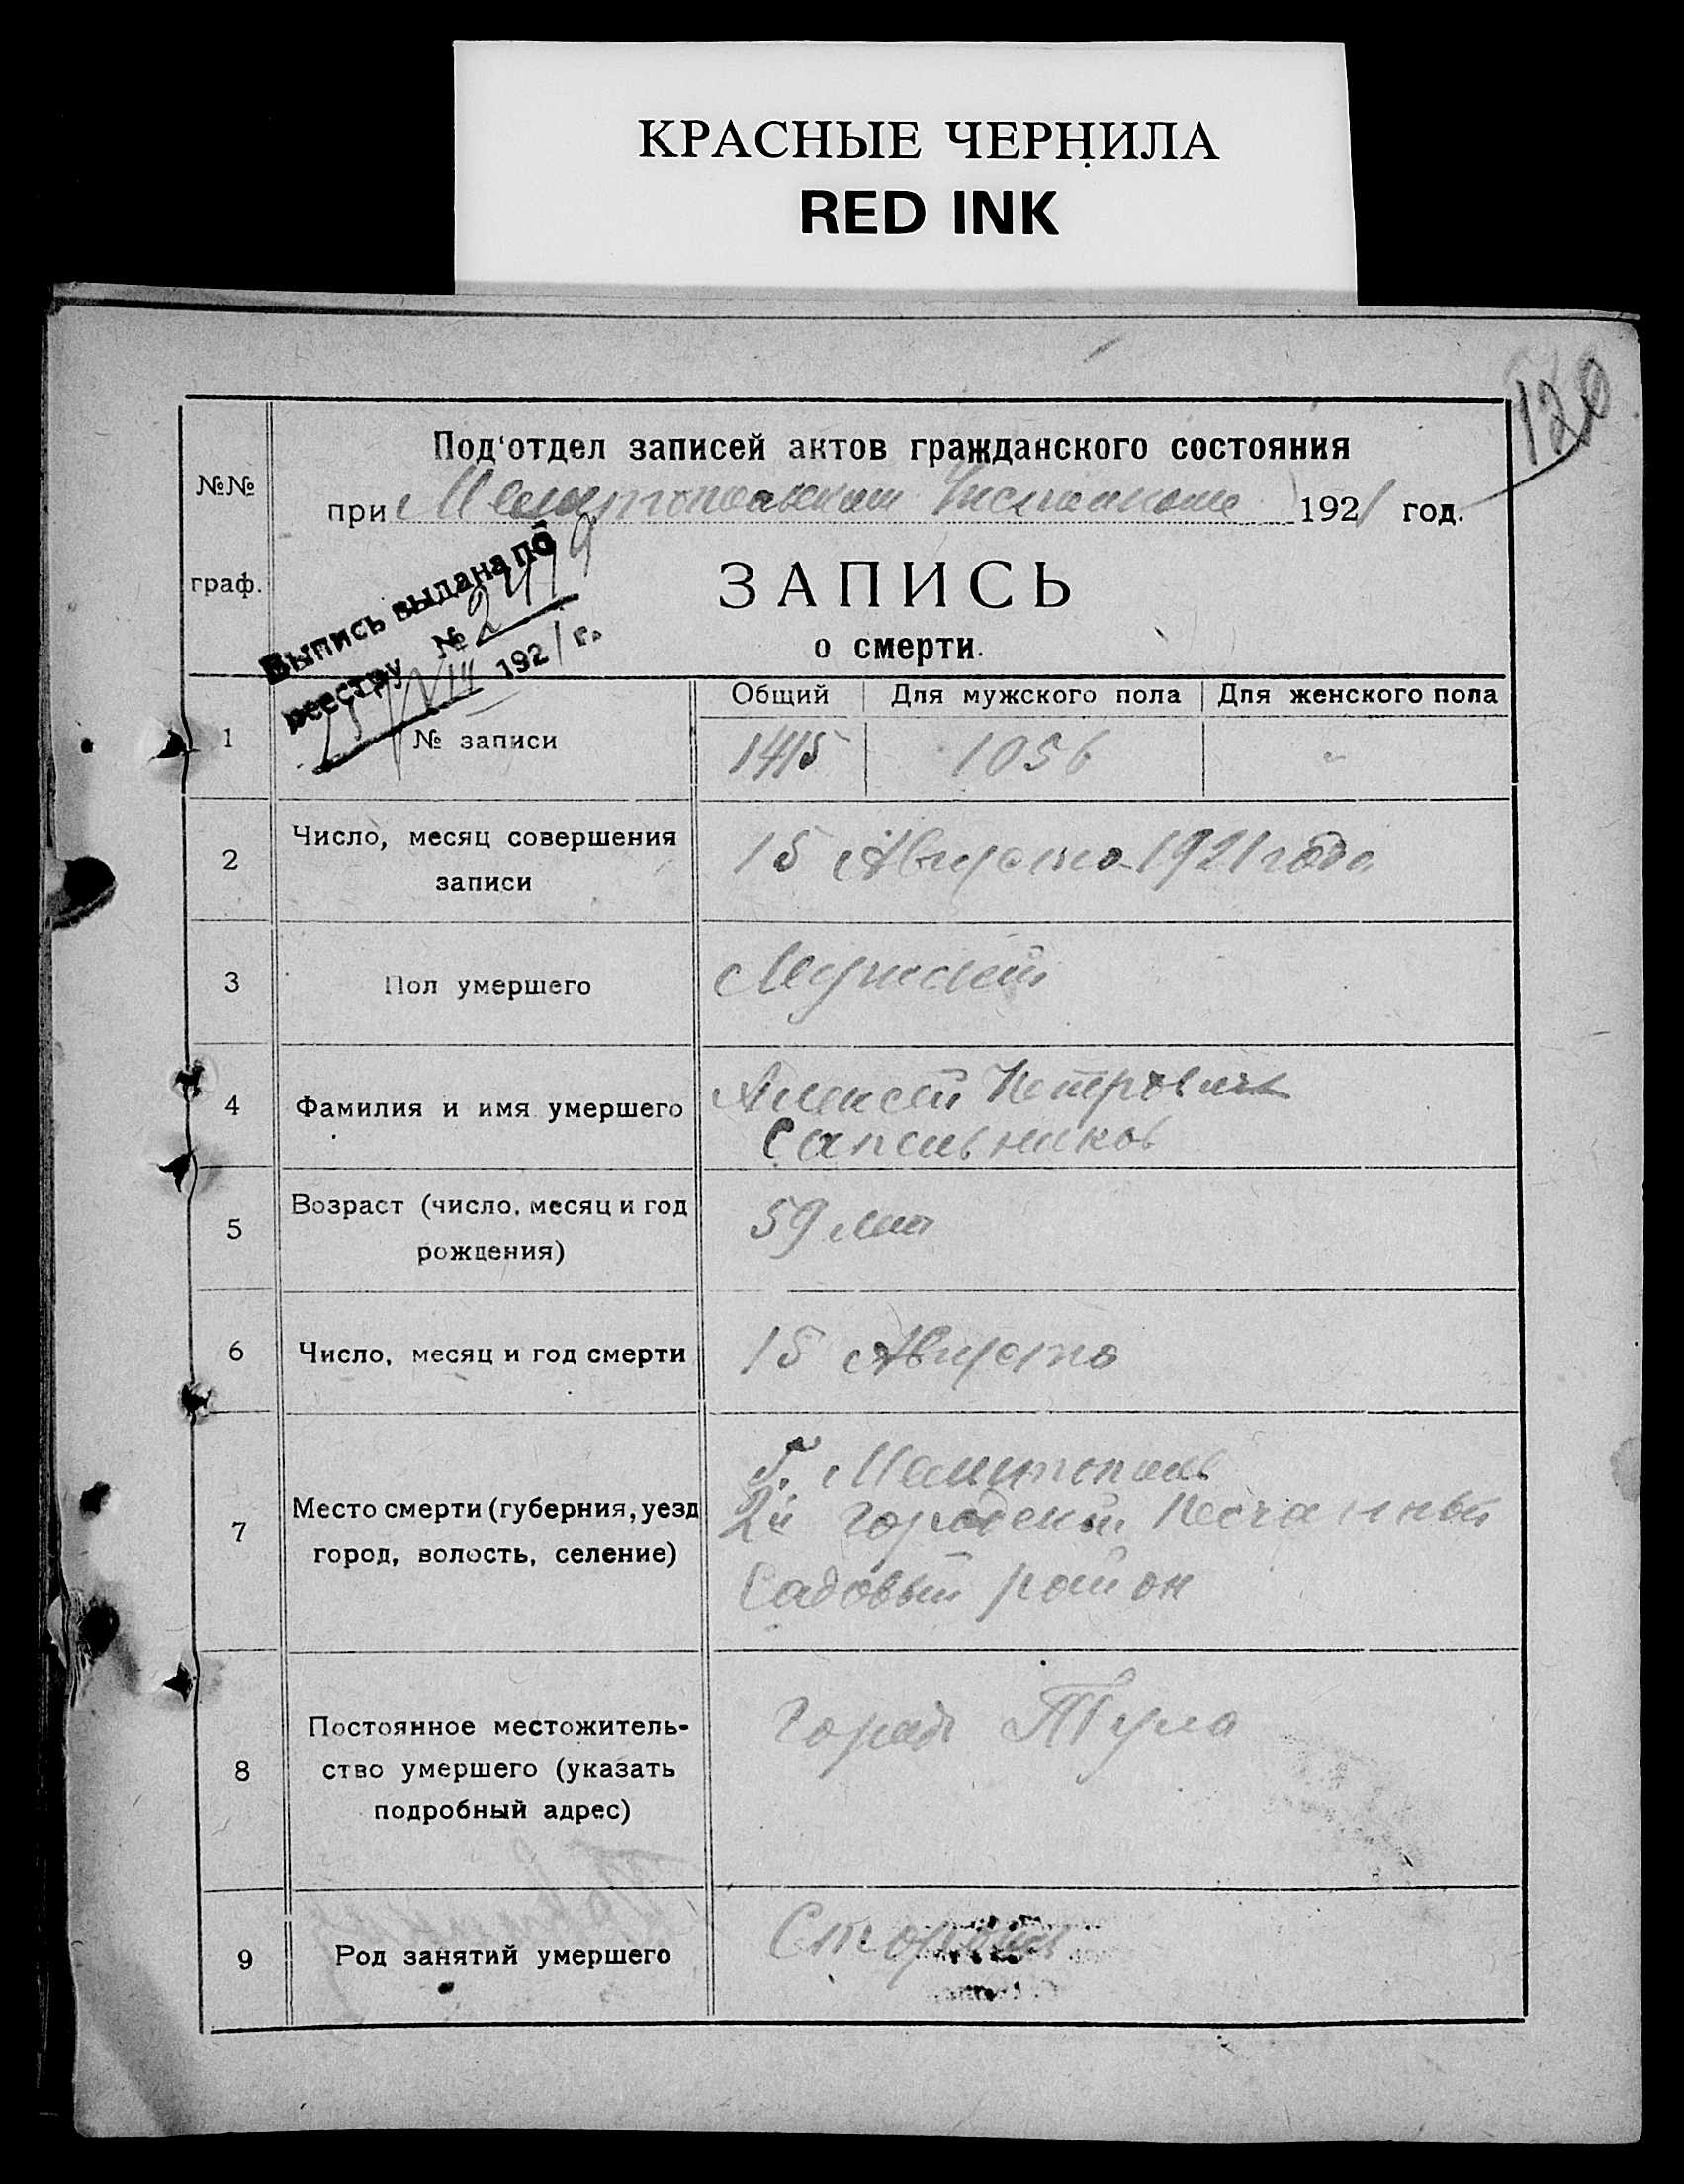 КРАСНЫЕ ЧЕРНИЛА
RED INK
120
№№
граф.
Под'отдел записей актов гражданского состояния
при Мелитопольском Исполкоме 1921 год.
Выпись выдана по
реестру № 2419
15/VIII 1921 г.
ЗАПИСЬ
о смерти.
Общий Для мужского пола Для женского пола
1 № записи 1415 1056 -
2 Число, месяц совершения
записи
15 Августа 1921 года
3 Пол умершего Мужской
4 Фамилия и имя умершего
Алексей Петрович
Сапельников
5 Возраст (число, месяц и год
рождения)
59 лет
6 Число, месяц и год смерти 15 Августа
7 Место смерти (губерния, уезд
город, волость, селение)
г. Мелитополь
2й городской Песчанный
Садовый район
8 Постоянное местожитель-
ство умершего (указать
подробный адрес)
город Тула
9 Род занятий умершего